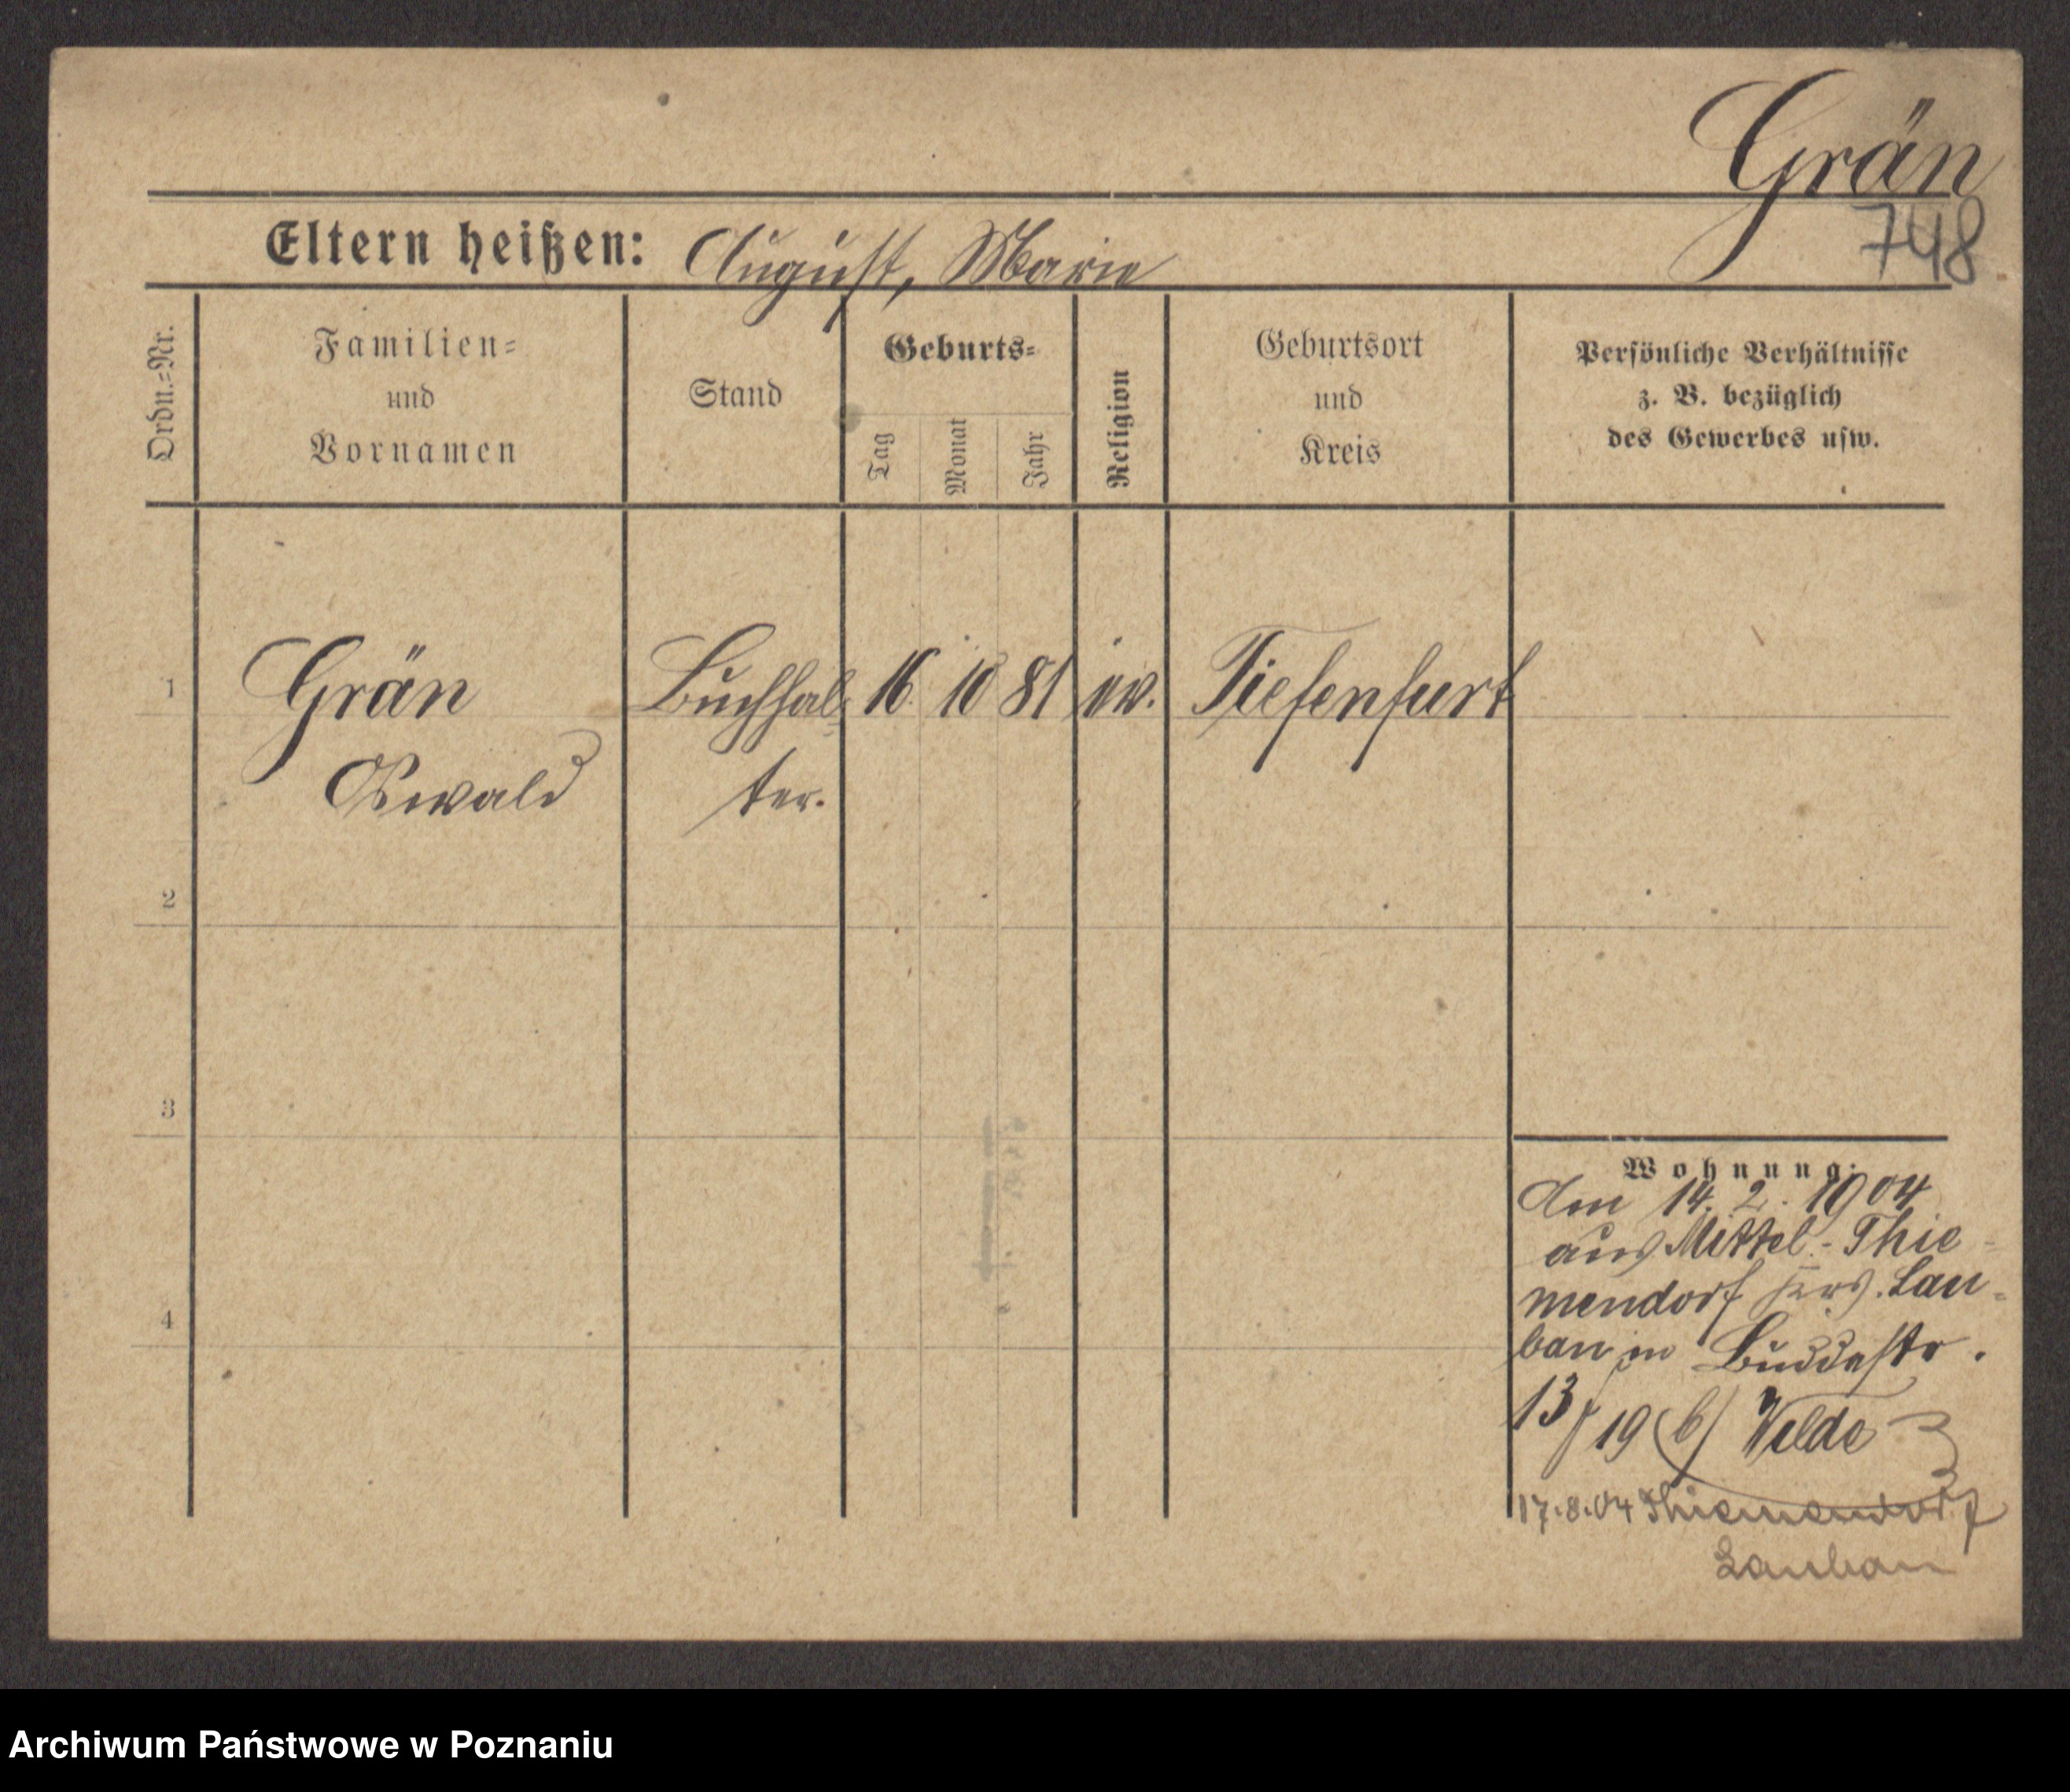 Grän
748
Eltern heißen: August, Marie
Ordn.=Nr.
Familien=
und
Vornamen
Stand
Geburts=
Tag
Monat
Jahr
Religion
Geburtsort
und
Kreis
Persönliche Verhältnisse
z. B. bezüglich
des Gewerbes usw.
1 Grän Buchhal 16. 10 81 ev. Tiefenfurt
Oswald ter.
2
3
4
Wohnung:
Am 14. 2. 1904
aus Mittel-Thie-
mendorf Krs. Lau-
ban in Buddestr.
13/19 (b/ Welde
17.8.04 Thiemendorf
Lauban
Archiwum Państwowe w Poznaniu